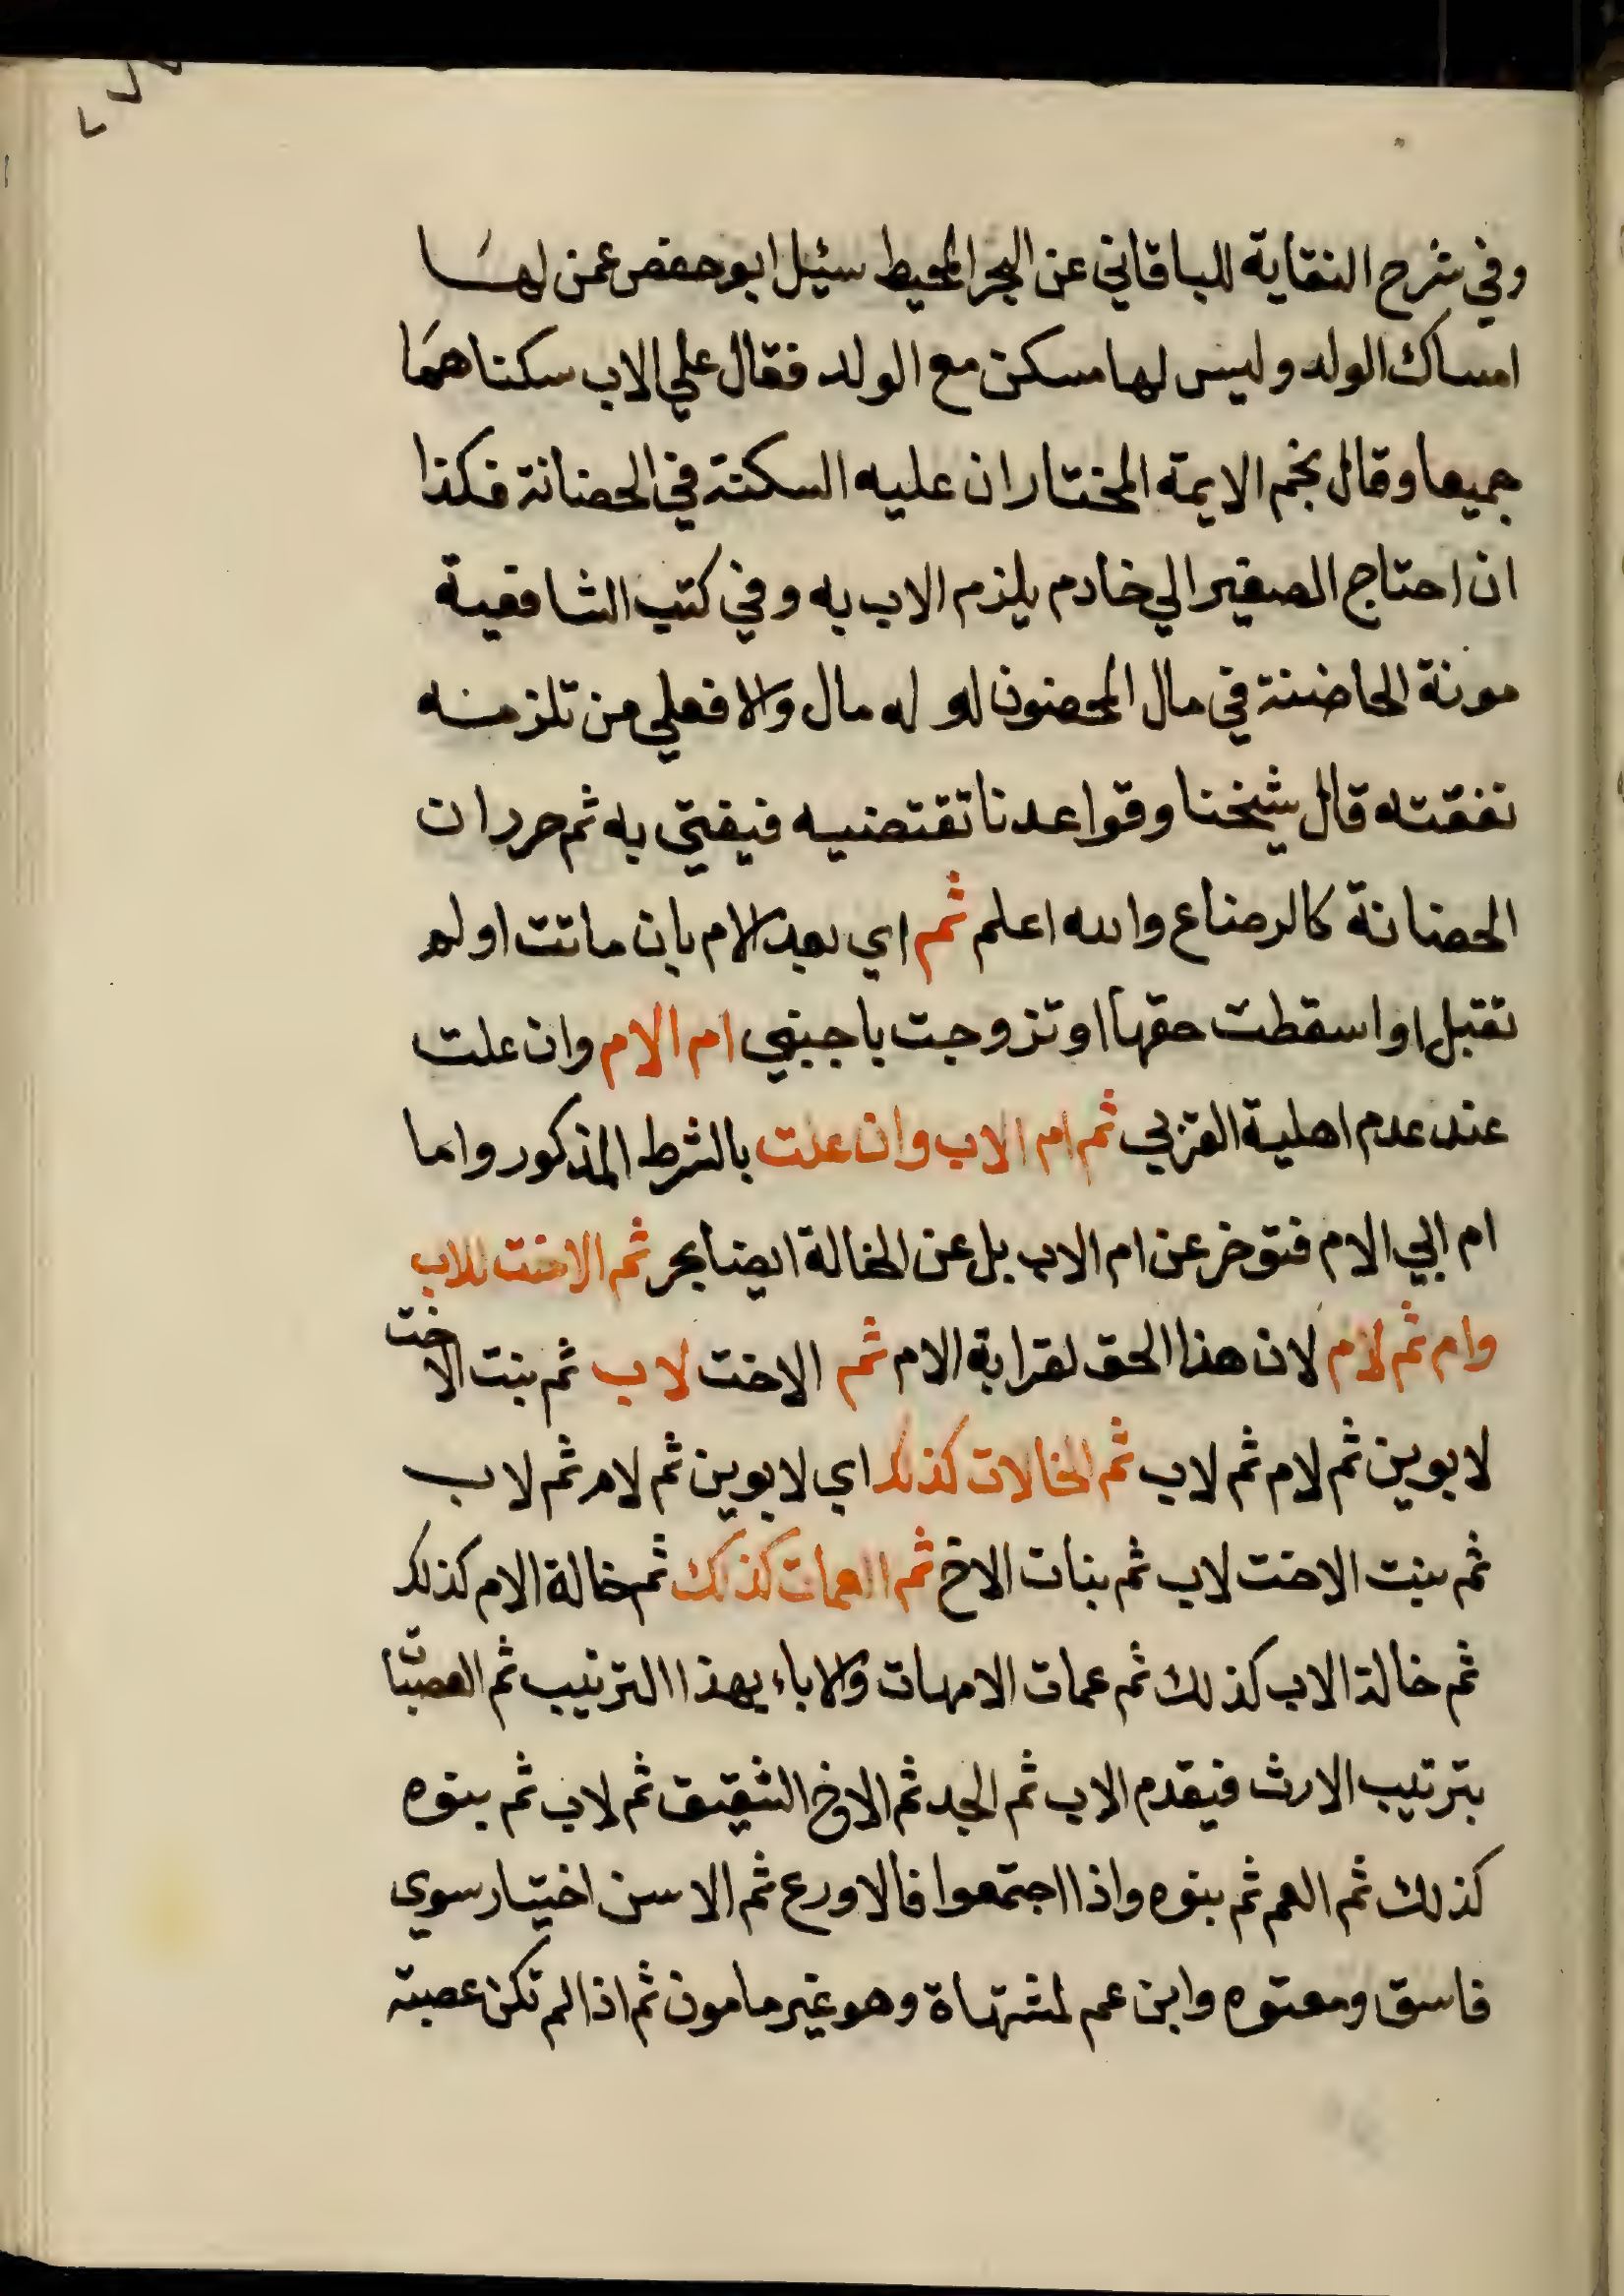 وفي شرح النقاية للباقاني عن البحر المحيط سئيل ابو حفص عمن لها
امساك الولد وليس لها مسكن مع الولد فقال علي الاب سكناهما
جميعا وقال نجم الايمة المختار ان عليه السكنة في الحضانة فكذا
ان احتاج الصغير الي خادم يلزم الاب به وفي كتب الشافعية
مونة الحاضنة في مال المحضون لو له مال والا فعلي من تلزمه
نفقته قال شيخنا وقواعدنا تقتضيه فيفتي به ثم حرر ان
الحضانة كالرضاع والله اعلم ثم اي بعد الام بان ماتت او لم
تقبل او اسقطت حقها او تزوجت باجنبي ام الام وان علت
عند عدم اهلية القربي ثم ام الاب وان علت بالشرط المذكور واما
ام ابي الام فتوخر عن ام الاب بل عن الخالة ايضا بحر ثم الاخت للاب
وام ثم لام لان هذا الحق لقرابة الام ثم الاخت لاب ثم بنت الاخت
لابوين ثم لام ثم لاب ثم الخالات كذلك اي لابوين ثم لام ثم لاب
ثم بنت الاخت لاب ثم بنات الاخ ثم العمات كذلك ثم خالة الام كذلك
ثم خالة الاب كذلك ثم عمات الامهات والاباء بهذا الترتيب ثم العصبات
بترتيب الارث فيقدم الاب ثم الجد ثم الاخ الشقيق ثم لاب ثم بنوه
كذلك ثم العم ثم بنوه واذا اجتمعوا فالاورع ثم الاسن اختيار سوي
فاسق ومعتوه وابن عم لمشتهاة وهو غير مامون ثم اذا لم تكن عصبة